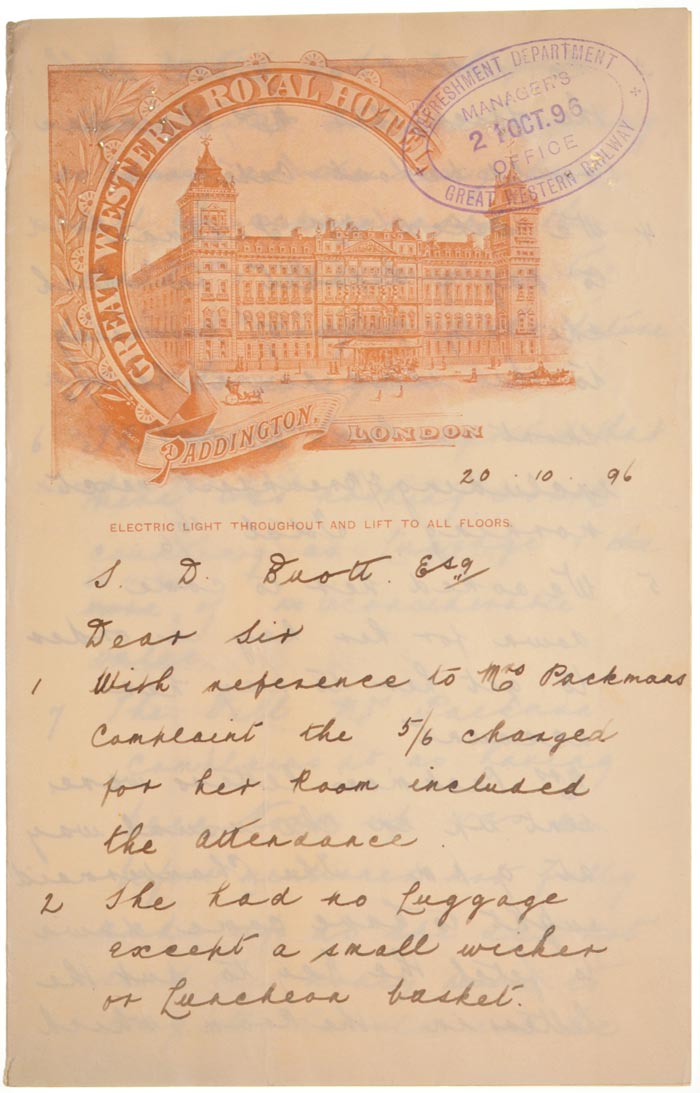 GREAT WESTERN ROYAL HOTEL
REFRESHMENT DEPARTMENT
MANAGER'S
21 OCT. 96
OFFICE
GREAT WESTERN RAILWAY
PADDINGTON.
LONDON
20 . 10 . 96
ELECTRIC LIGHT THROUGHOUT AND LIFT TO ALL FLOORS.
S. D. Esq
Dear Sir
1 With reference to Mrs Packmans
Complaint the 5/6 charged
for her Room included
the attendance.
2 She had no Luggage
except a small wicker
or Luncheon basket.